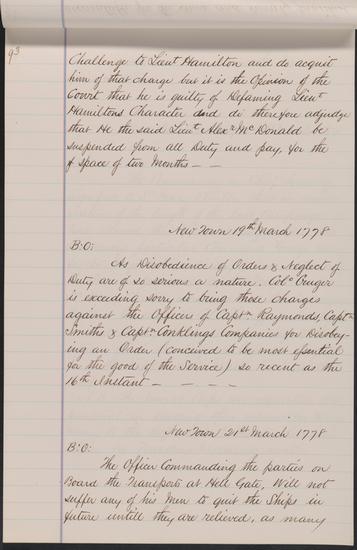 93
Challenge to Lieut Hamilton and do acquit
him of that charge but it is the Opinion of the
Court that he is guilty of Defaming Lieut
Hamiltons Character and do therefore adjudge
that He the said Lieut Alexr McDonald be
suspended from all Duty and pay for the
f space of two Months — —
New Town 19th March 1778
B:O:
As Disobedience of Orders & Neglect of
Duty are of so serious a nature. Colo Cruger
is exceeding sorry to bring those charges
against the Officers of Captn Raymonds, Captn
Smiths & Captn Conklings Companies for Disobey-
ing an Order (conceived to be most essential
for the good of the Service) so recent as the
16th Instant — — — — —
New Town 21st March 1778
B:O:
The Officer Commanding the parties on
Board the Transports at Hell Gate, Will not
suffer any of his Men to quit the Ships in
future untill they are relieved, as many